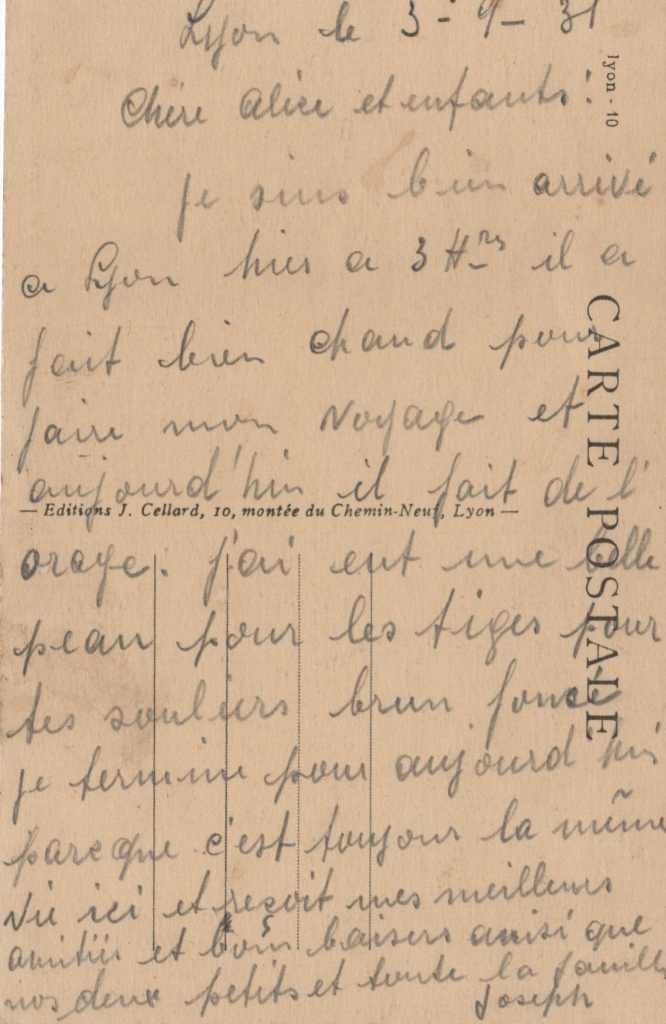 Lyon le 3-9-31
Chère Alice et enfants!
Je suis bien arrivé
a Lyon hier a 3 Hres il a
fait bien chaud pour
faire mon voyage et
aujourd'hui il fait de l'
orage. J'ai eut une belle
peau pour les tiges pour
tes souliers brun foncé
je termine pour aujourd hui
parcque c'est toujour la même
vie ici et reçoit mes meilleurs
amitiés et bons baisers ansi que
nos deux petits et toute la famille
Joseph
lyon - 10
CARTE POSTALE
— Editions J. Cellard, 10, montée du Chemin-Neuf, Lyon —